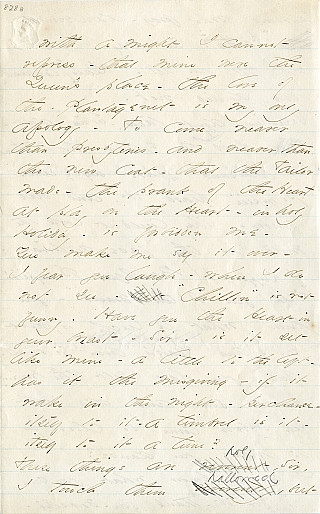 828a
with a might I cannot
repress - that mine were the
Queen's place - the love of
the - Plantagenet is my only
Apology - To come nearer
than Presbyteries - and nearer than
the new Coat - that the Tailor
made - the prank of the Heart
at play on the Heart - in holy
Holiday - is forbidden me -
You make me say it over -
I fear you laugh - when I do
not see - "Chillon" is not
funny. Have you the Heart in
your breast - Sir - is it set
like mine - a little to the left -
has it the misgiving - if it
wake in the night - perchance -
itself to it - a timbrel is it -
itself to it a tune?
These things are holy, Sir,
I touch them hallowed, but